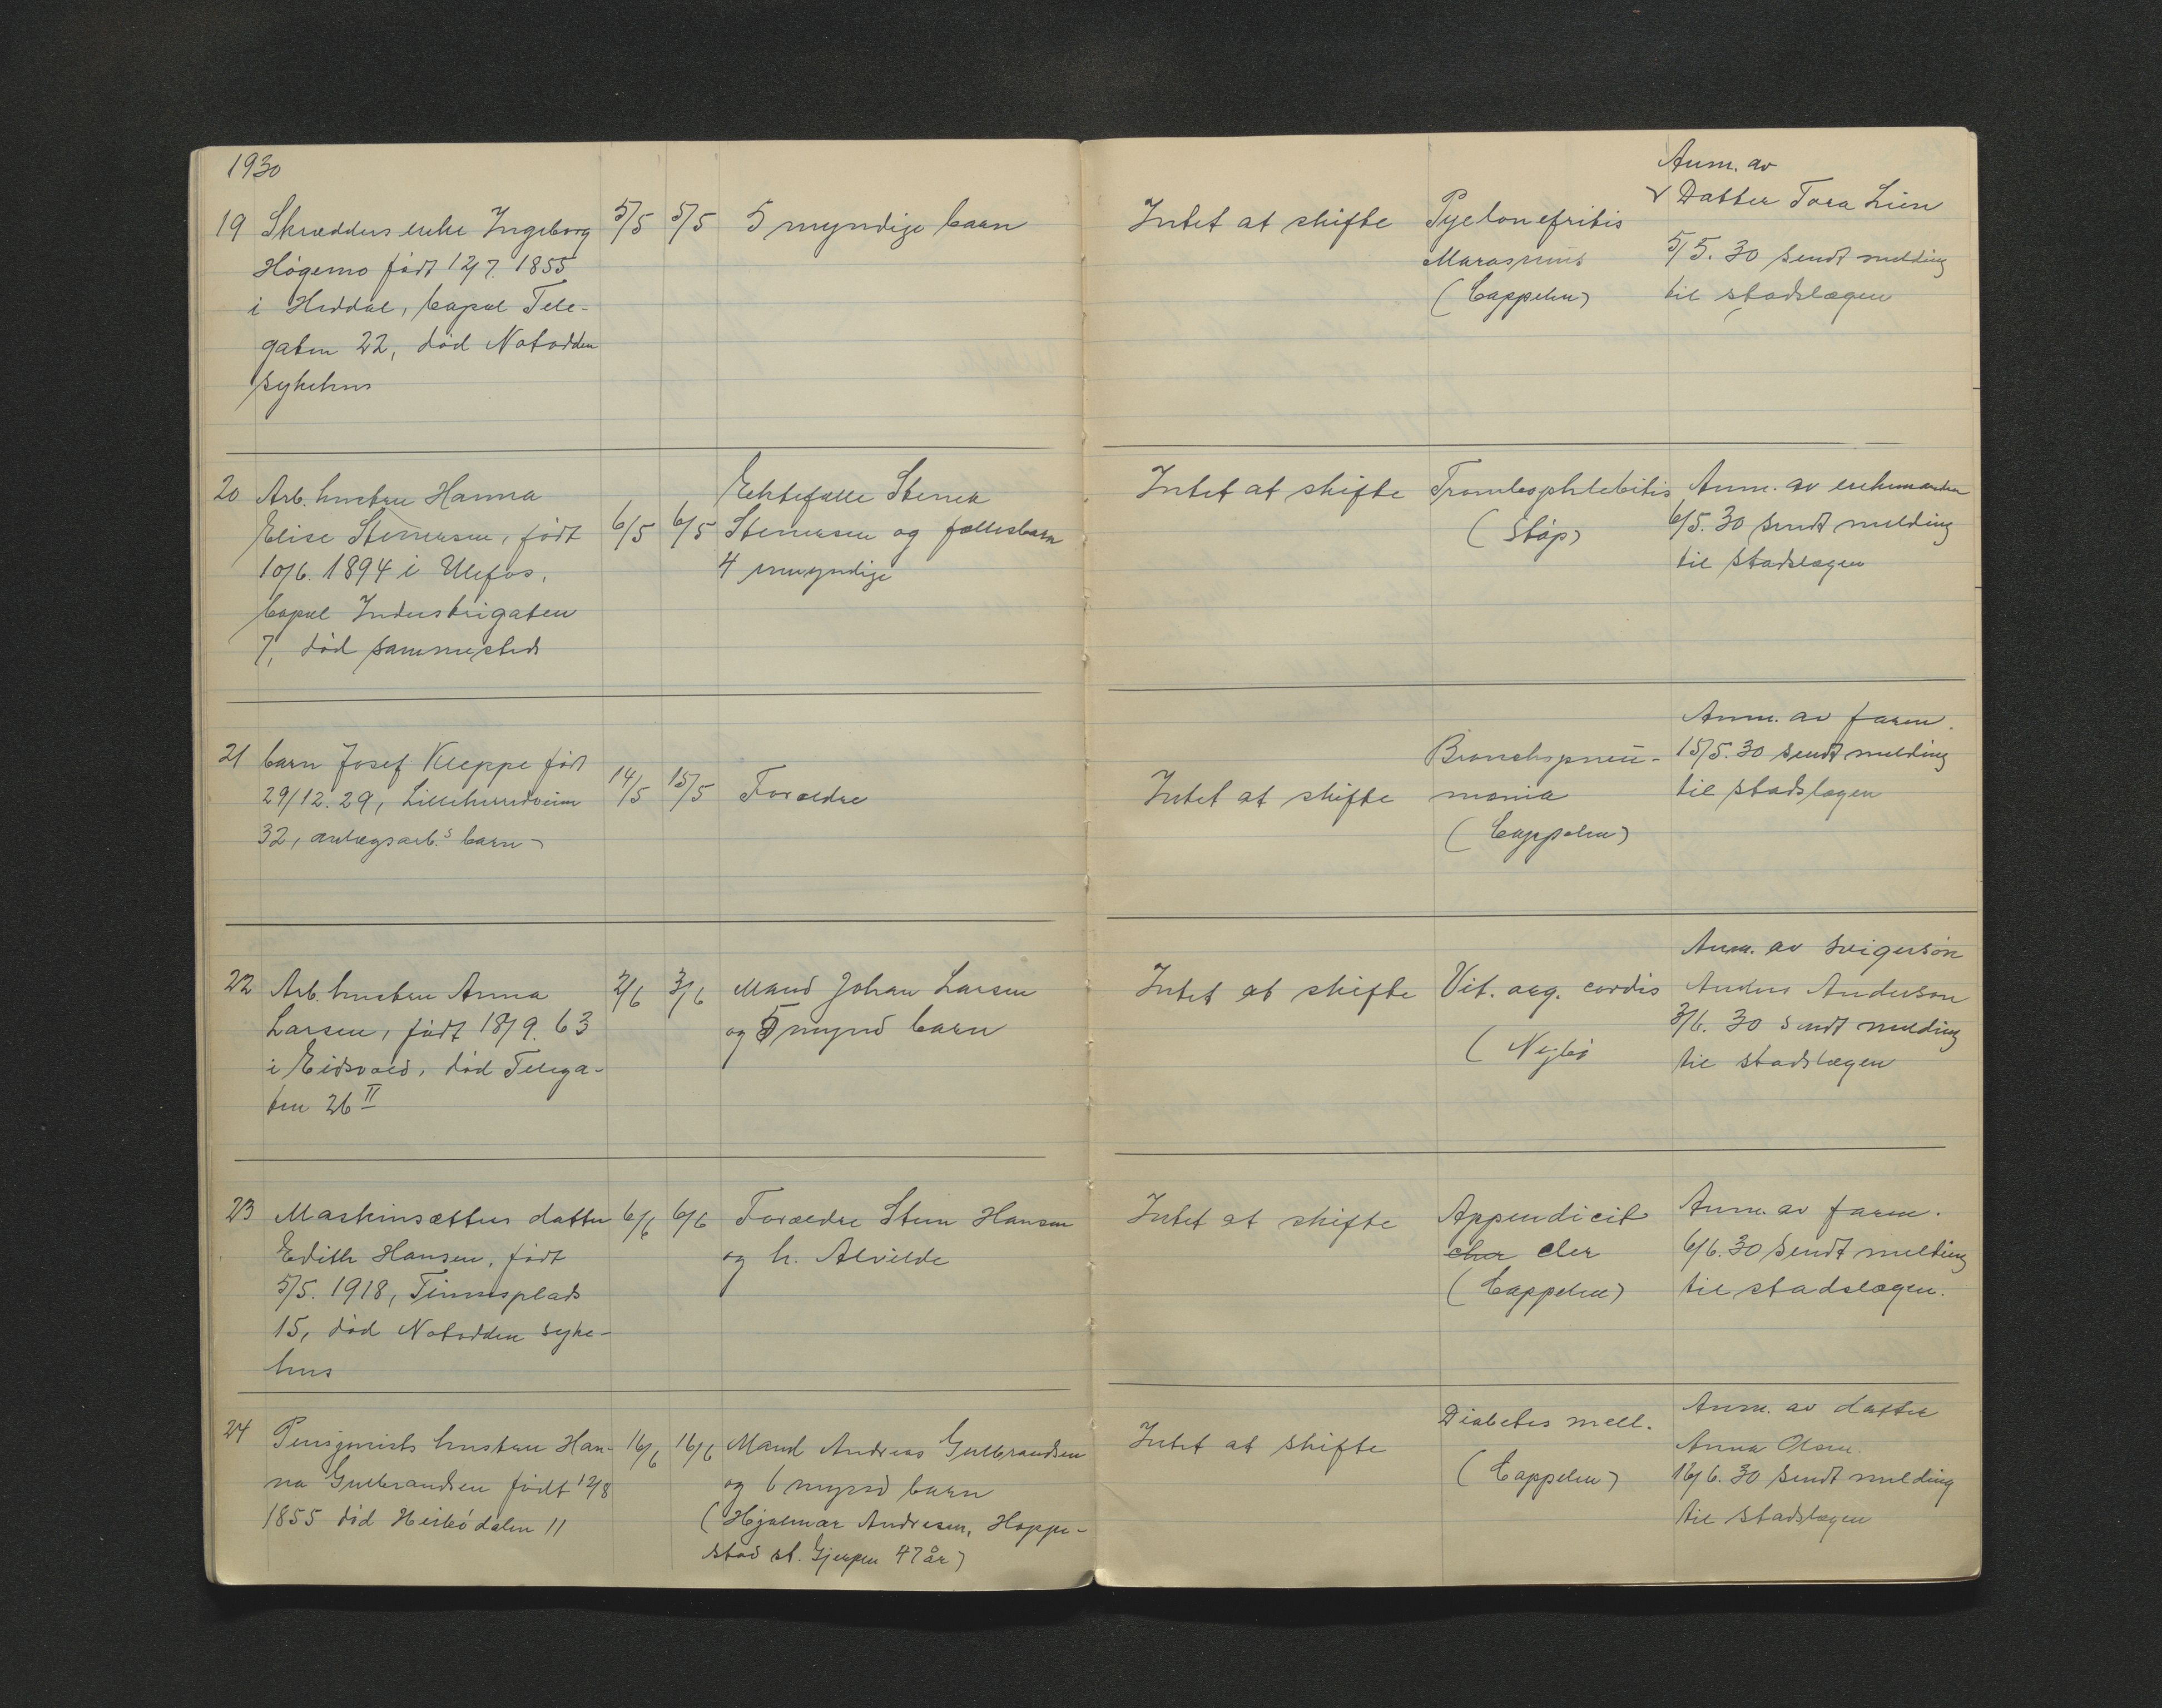 1930
19 Skrædders enke Ingeborg 5/5 5/5 5 myndige barn
Høgemo født 12/7. 1855
i Heddal, bopæl Tele-
gaten 22, død Notodden
sykehus
Intet at skifte Pyelonefritis
Marasmus
(Cappelen)
Anm. av
V Datter Tora Lien
5/5. 30 sendt melding
til stadslægen
20 Arb. hustru Hanna
Elise Stenersen, født 6/5 6/5
10/6. 1894 i Ulefos,
bopæl Industrigaten
7, død sammesteds
Ektefælle Stener
Stenersen og fællesbarn
4 umyndige
Intet at skifte Trombophlebitis
(Støp)
Anm. av enkemanden
6/5. 30 sendt melding
til stadslægen
21 barn Josef Kleppe født
29/12. 29, Lilleherredveien 14/5 15/5 Forældre
32, anlægsarb.s barn
Intet at skifte
Bronchopneu-
monia
(Cappelen)
Anm. av faren.
15/5. 30 sendt melding
til stadslægen
22 Arb. hustru Anna 2/6 3/6 Mand Johan Larsen
Larsen, født 18/9. 63 og 5 mynd barn
i Eidsvold, død Telega-
ten 26 II
Intet at skifte Vit. org. cordis
(Nybø
Anm. av svigersøn
Anders Anderson
3/6. 30 sendt melding
til stadslægen
23 Maskinsætters datter 6/6 6/6 Forældre Stein Hansen
Edith Hansen, født og h. Alvilde
5/5. 1918, Tinnesplads
15, død Notodden syke-
hus
Intet at skifte Appendicit
cler
(Cappelen)
Anm. av faren.
6/6. 30 sendt melding
til stadslægen.
24 Pensjonists hustru Han- 16/6 16/6 Mand Andreas Gulbrandsen
na Gulbrandsen født 12/8 og 6 mynd barn
1855 død Heibødalen 11 (Hjalmar Andresen, Hoppe-
stad st. Gjerpen 47 år)
Intet at skifte
Diabetes mell.
(Cappelen)
Anm. av datter
Anna Olsen.
16/6. 30 sendt melding
til stadslægen